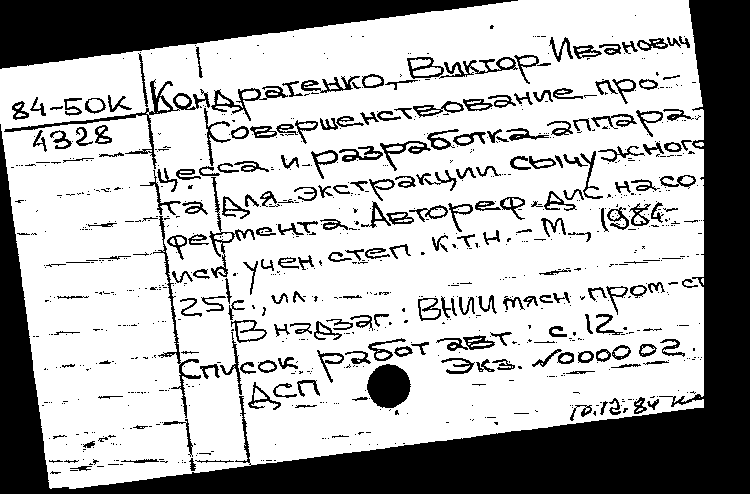 84-50К
4328
Кондратенко, Виктор Иванович
Совершенствование про-
цесса и разработка аппара-
та для экстракции сычужного
фермента: Автореф. дис. на со-
иск. учен. степ. к.т.н. - М., 1984-
25 с., ил.
В надзаг.: ВНИИ мясн. пром-ст
Список работ авт.: с. 12.
Экз. №000002.
ДСП
10.12.84